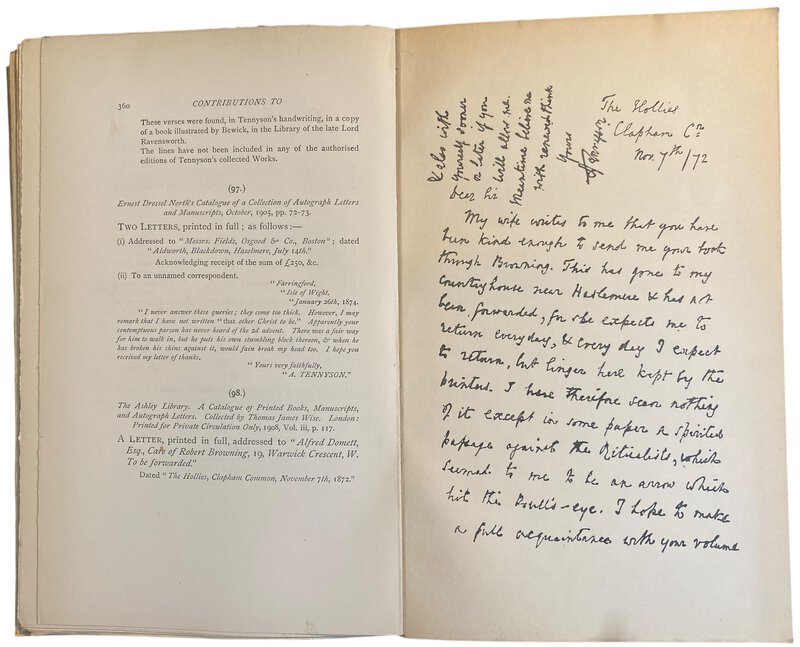 360 CONTRIBUTIONS TO
These verses were found, in Tennyson's handwriting, in a copy
of a book illustrated by Bewick, in the Library of the late Lord
Ravensworth.
The lines have not been included in any of the authorised
editions of Tennyson's collected Works.
(97.)
Ernest Dressel North's Catalogue of a Collection of Autograph Letters
and Manuscripts, October, 1905, pp. 72-73.
TWO LETTERS, printed in full; as follows:—
(i) Addressed to "Messrs. Fields, Osgood & Co., Boston"; dated
"Aldworth, Blackdown, Haselmere, July 14th."
Acknowledging receipt of the sum of £250, &c.
(ii) To an unnamed correspondent.
"Farringford,
"Isle of Wight.
"January 26th, 1874.
"I never answer these queries; they come too thick. However, I may
remark that I have not written "that other Christ to be." Apparently your
contemptuous parson has never heard of the 2d advent. There was a fair way
for him to walk in, but he puts his own stumbling block thereon, & when he
has broken his shins against it, would fain break my head too. I hope you
received my letter of thanks.
"Yours very faithfully,
"A. TENNYSON."
(98.)
The Ashley Library. A Catalogue of Printed Books, Manuscripts,
and Autograph Letters. Collected by Thomas James Wise. London:
Printed for Private Circulation Only, 1908, Vol. iii, p. 117.
A LETTER, printed in full, addressed to "Alfred Domett,
Esq., Care of Robert Browning, 19, Warwick Crescent, W.
To be forwarded."
Dated "The Hollies, Clapham Common, November 7th, 1872."
The Hollies
Clapham Cn
Nov. 7th/72
Dear Sir
My wife writes to me that you have
been kind enough to send me your book
through Browning. This has gone to my
countryhouse near Haslemere & has not
been forwarded, for she expects me to
return everyday, & every day I expect
to return, but linger here kept by the
printers. I have therefore seen nothing
of it except in some paper a spirited
passage against the Ritualists, which
seemed to me to be an arrow which
hit the Bull's-eye. I hope to make
a full acquaintance with your volume
& also with
yourself sooner
or later if you
will allow me.
Meantime believe me
with renewed thanks
Yours
A Tennyson